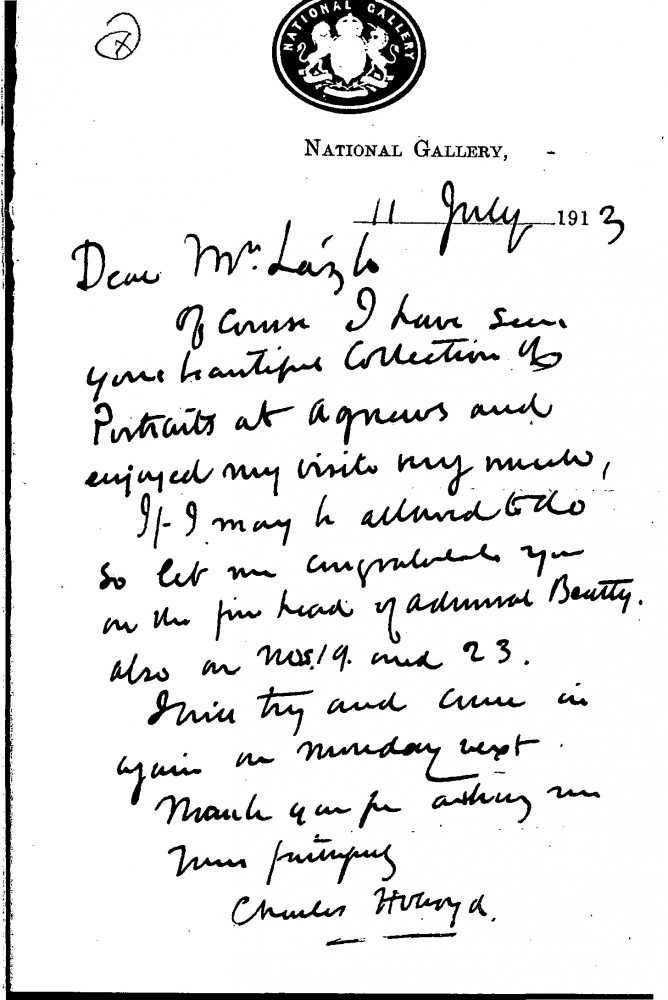 NATIONAL GALLERY
NATIONAL GALLERY,
11 July 1913
Dear Mr. László
Of course I have seen
your beautiful Collection of
Portraits at Agnews and
enjoyed my visits very much,
If I may be allowed to do
so let me congratulate you
on the fine head of Admiral Beatty.
also on Nos. 19. and 23.
I will try and come in
again on Monday next.
Thank you for asking me
Yours faithfully
Charles Holroyd.